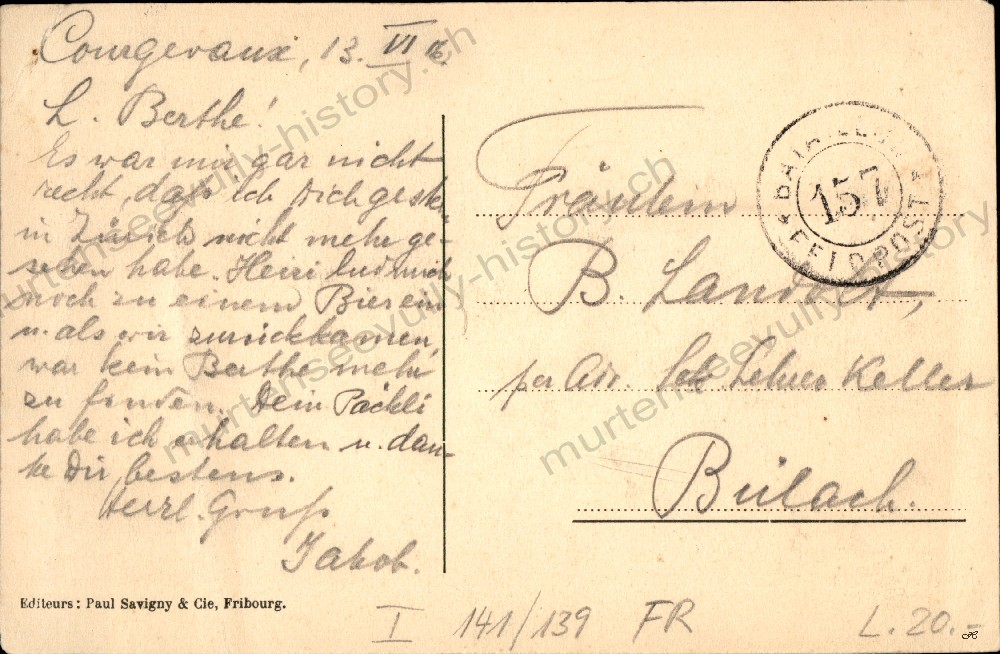 Courgevaux, 13. VI 16.
L. Berthe!
Es war mir gar nicht
recht, daß ich Dich gestern
in Zürich nicht mehr ge-
sehen habe. Heiri lud mich
noch zu einem Bier ein
u. als wir zurückkamen,
war kein Berthe mehr
zu finden. Dein Päckli
habe ich erhalten u. dan-
ke Dir bestens.
Herzl. Gruß
Jakob.
Editeurs: Paul Savigny & Cie, Fribourg.
* BATAILLON *
157
FELDPOST
Fräulein
B. Landolt,
per Adr. Lehrer Keller
Bülach.
I 141/139 FR L. 20.-
murtenseevully-history.ch
murtenseevully-history.ch
murtenseevully-history.ch
murtenseevully-history.ch